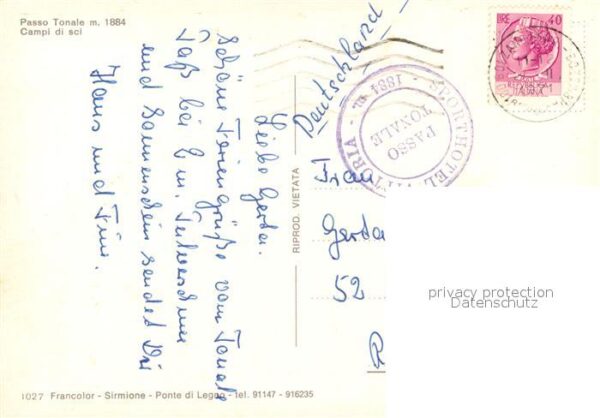 Passo Tonale m. 1884
Campi di sci
Liebe Gerda.
Schöne Feriengrüße vom Tonale
Paß bei 2 m. Pulverschnee
und Sonnenschein sendet Dir
Hans und
RIPROD. VIETATA
Deutschland
Frau
Gerda
52
LIRE 40
REPUBBLICA
ITALIANA
SPORTHOTEL VITTORIA
1884 m.
PASSO
TONALE
privacy protection
Datenschutz
1027 Francolor - Sirmione - Ponte di Legno - tel. 91147 - 916235